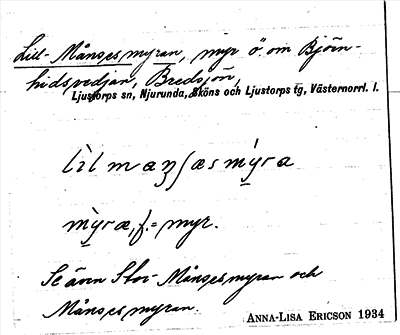 Lill-Månsesmyran, myr ö. om Björn-
hidsvedjan, Bredsjön,
Ljustorps sn, Njurunda, Sköns och Ljustorps tg, Västernorrl. l.
myræ, f. = myr.
Se även Stor-Månsesmyran och
Månsesmyran.
ANNA-LISA ERICSON 1934